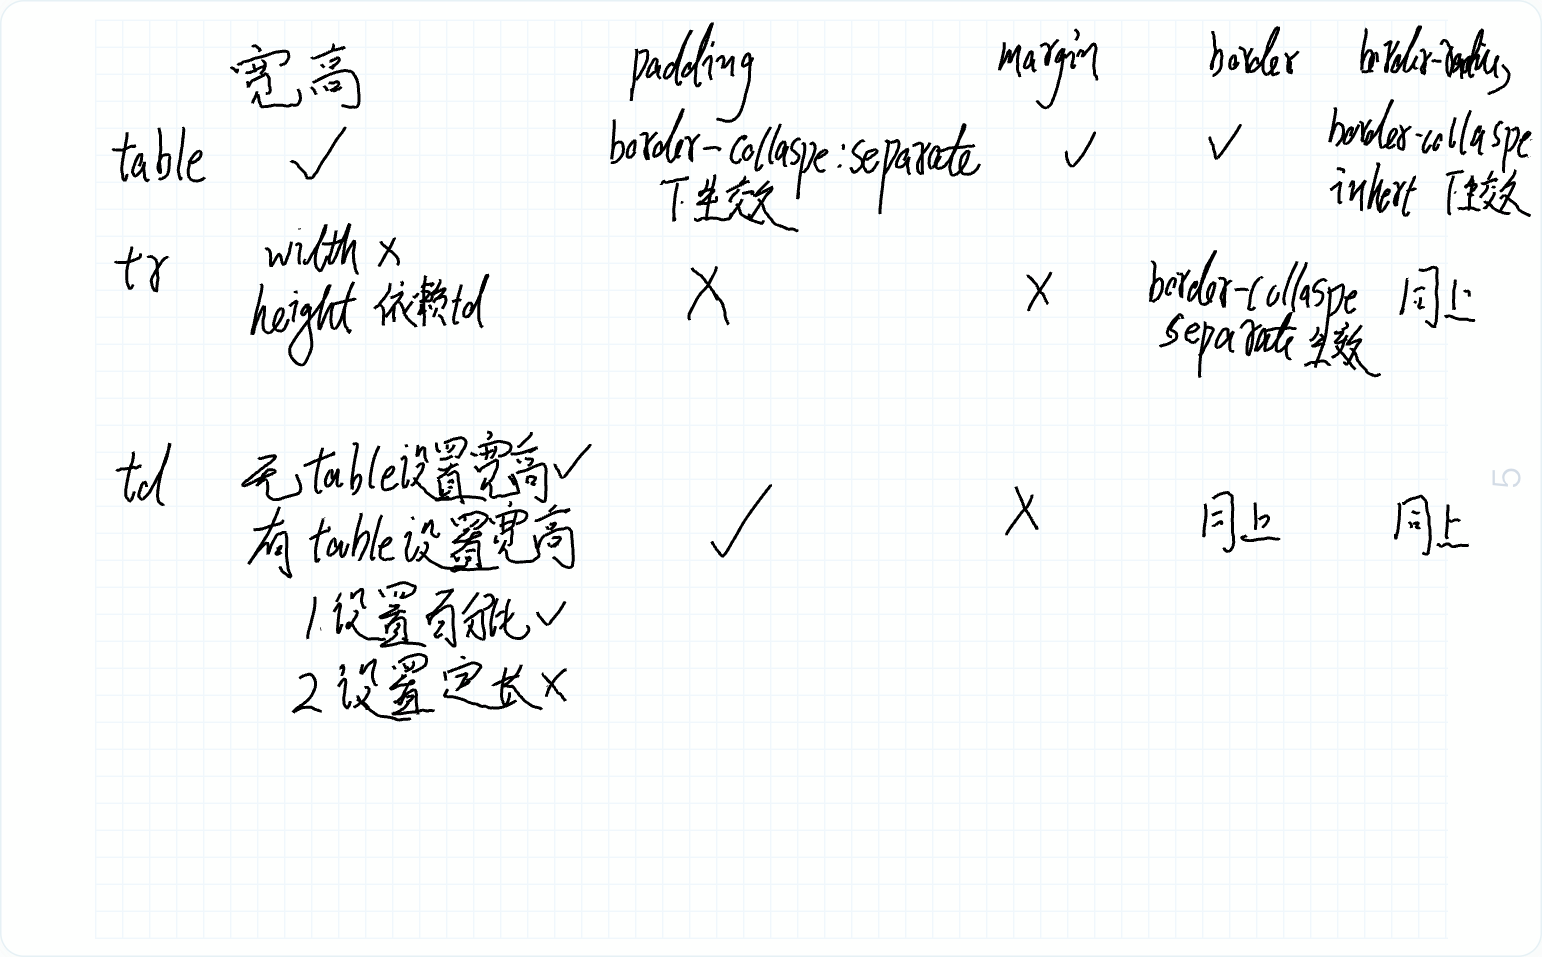 宽高 padding margin border border-radius
table ✓ border-collaspe:separate ✓ ✓ border-collaspe
下生效 inhert 下生效
tr width ×
height 依赖td × × border-collaspe 同上
separate 生效
td 无table设置宽高✓
有table设置宽高 ✓ × 同上 同上
1.设置百分比✓
2 设置定长×
5